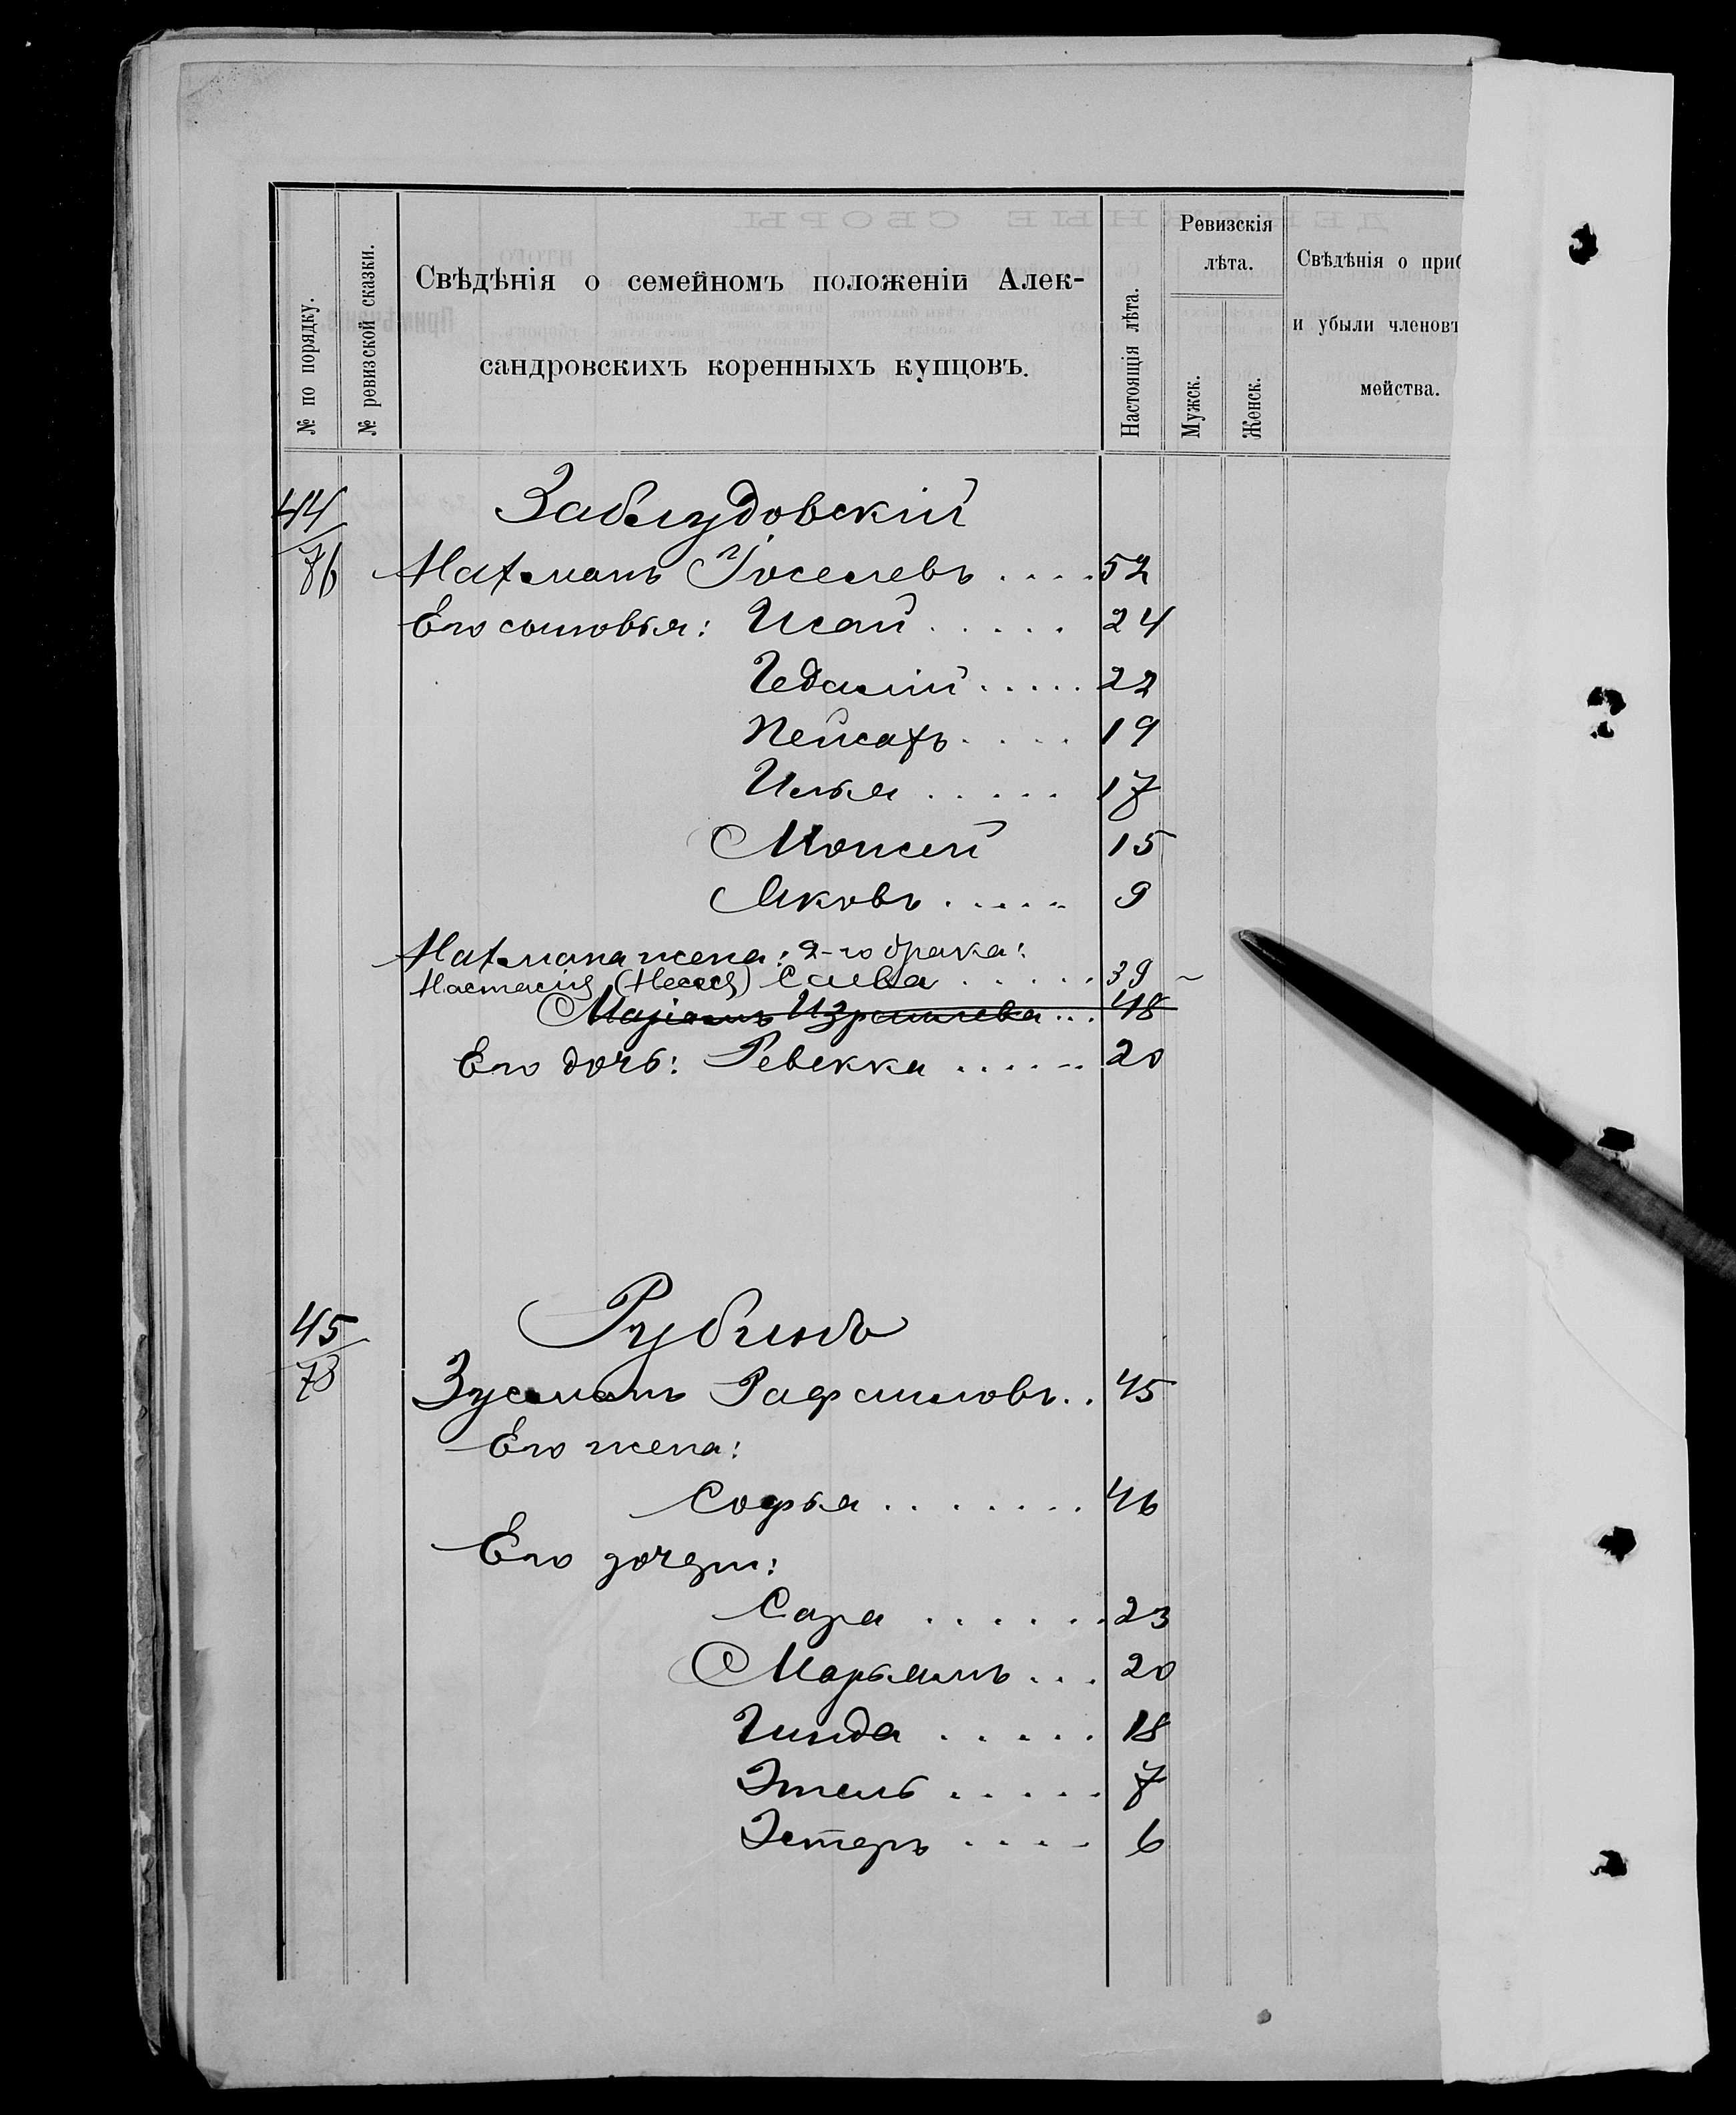 № по порядку.
№ ревизской сказки.
Свѣдѣнія о семейномъ положеніи Алек-
сандровскихъ коренныхъ купцовъ.
Настоящія лѣта.
Ревизскія
лѣта.
Мужск.
Женск.
Свѣдѣнія о приб
и убыли членовъ
мейства.
44/76 Заблудовскій
Нахманъ Іоселевъ .... 52
Его сыновья: Исай ..... 24
Гедалій ..... 22
Пейсахъ .... 19
Илья ..... 17
Моисей 15
Яковъ ..... 9
Нахмана жена: 2-го брака:
Настасія (Несся) ..... 39
Маріамъ Израилева ... 48
Его дочь: Ревекка ...... 20
45/78 Рубинъ
Зусманъ Рафаиловъ .. 45
Его жена:
Софья ....... 46
Его дочери:
Сара ...... 23
Марьямъ ... 20
Гинда ..... 18
Этель ..... 7
Эстеръ .... 6